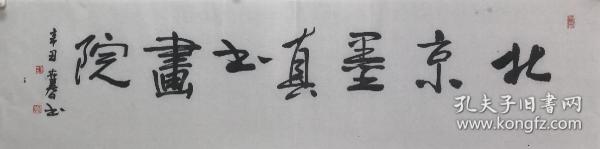 北京墨真书畫院
辛丑
书
孔夫子旧书网
www.kongfz.com